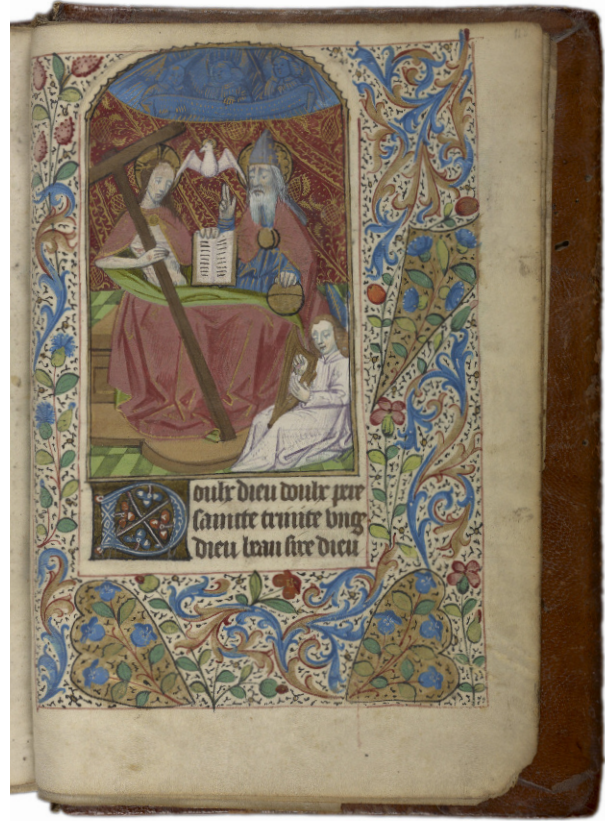 Doulx dieu doulx pere
saincte trinite vng
dieu beau sire dieu